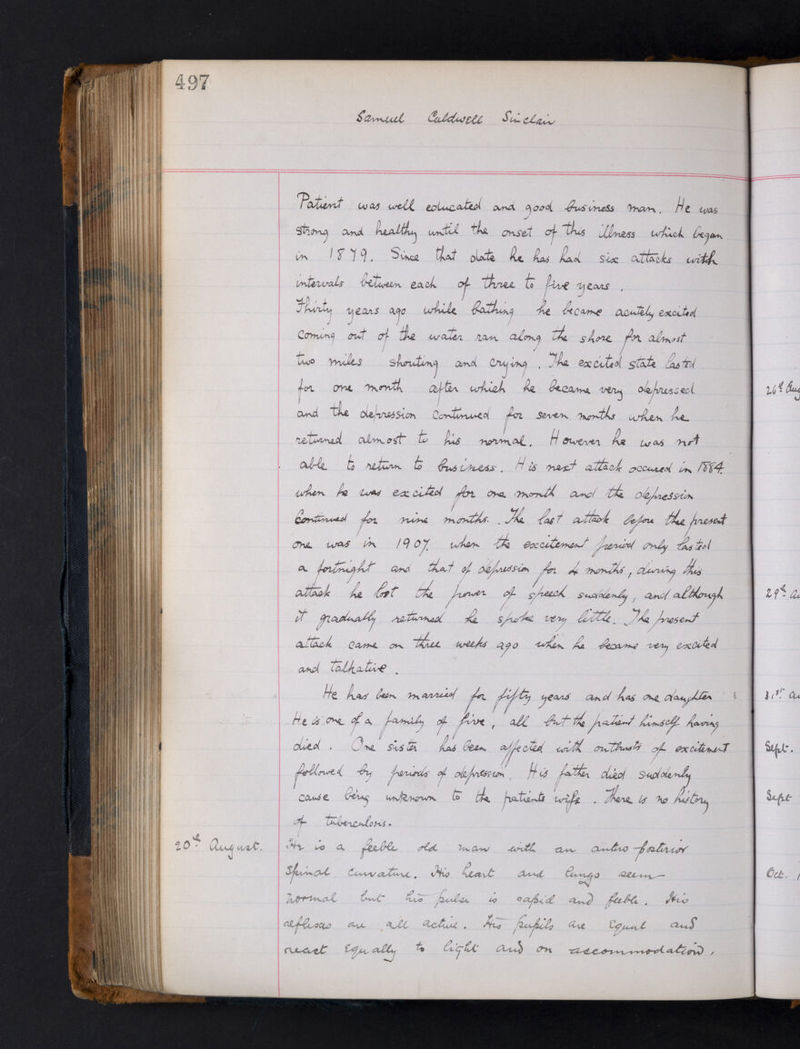 497
Samuel Caldwell Sinclair
Patient was well educated and good business man. He was
strong and healthy until the onset of this illness which began
in 1879. Since that date he has had six attacks with
intervals between each of three to five years.
Thirty years ago while bathing he became acutely excited
coming out of the water ran along the shore for almost
two miles shouting and crying. The excited state lasted
for one month after which he became very depressed
and the depression continued for seven months when he
returned almost to his normal. However he was not
able to return to business. His next attack occured in 1884.
when he was excited for one month and the depression
continued for nine months. The last attack before the present
one was in 1907. when the excitement period only lasted
a fortnight and that of depression for 4 months, during this
attack he lost the power of speech suddenly, and although
it gradually returned he spoke very little. The present
attack came on three weeks ago when he became very excited
and talkative.
He has been married for fifty years and has one daughter
He is one of a family of five, all but the patient himself having
died. One sister has been affected with outbursts of excitement
followed by periods of depression. His father died suddenly
cause being unknown to the patients wife. There is no history
of tuberculosis.
20th August. He is a feeble old man with an antro-posterior
spinal curvature. His heart and lungs seem
normal but his pulse is rapid and feeble. His
reflexes are all active. His pupils are equal and
react equally to light and on accommodation.
26th Aug
29th Au
31st Au
Sept.
Sept
Oct.